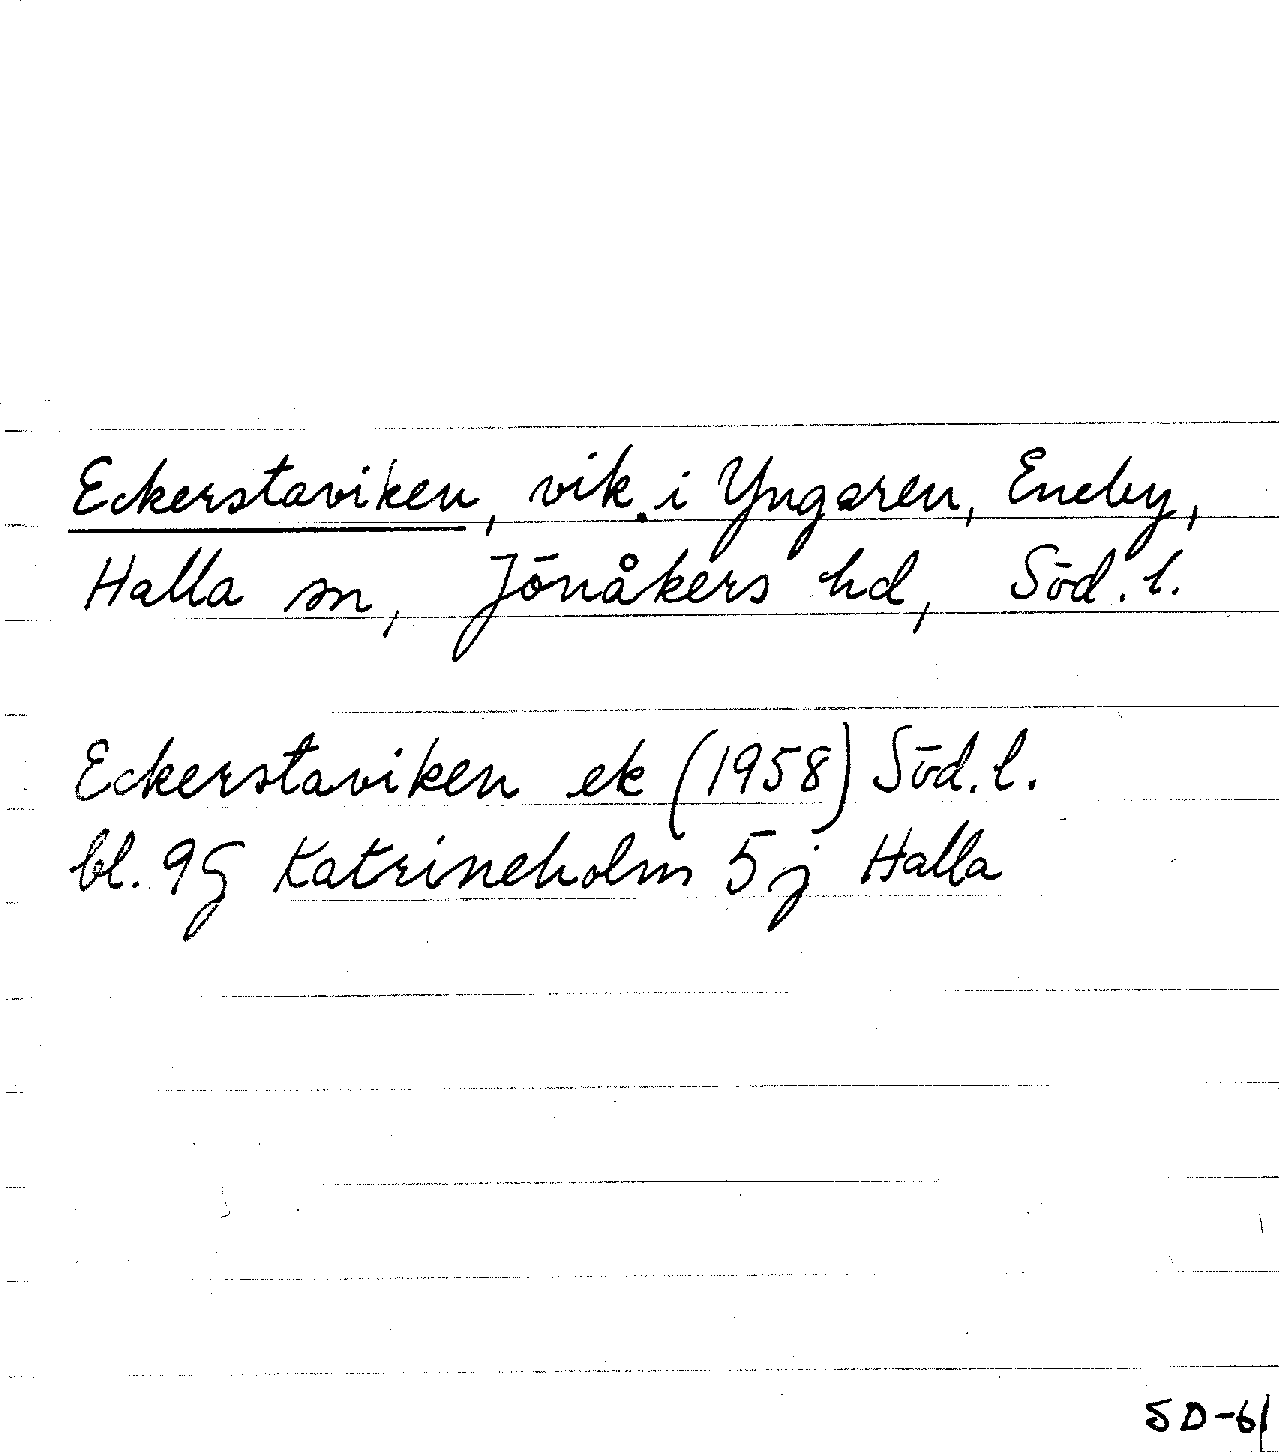 Eckerstaviken, vik i Yngaren, Eneby,
Halla sn, Jönåkers hd, Söd. l.
Eckerstaviken ek (1958) Söd. l.
bl. 9G Katrineholm 5 j Halla
SD-61